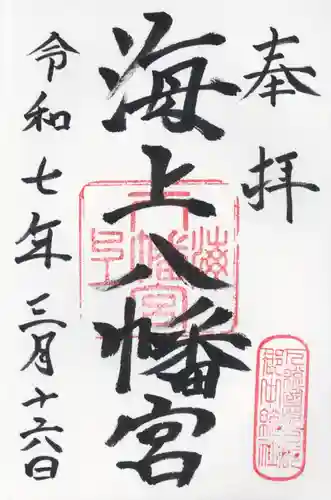 奉拝
海上八幡宮
令和七年三月十六日
海上八幡宮